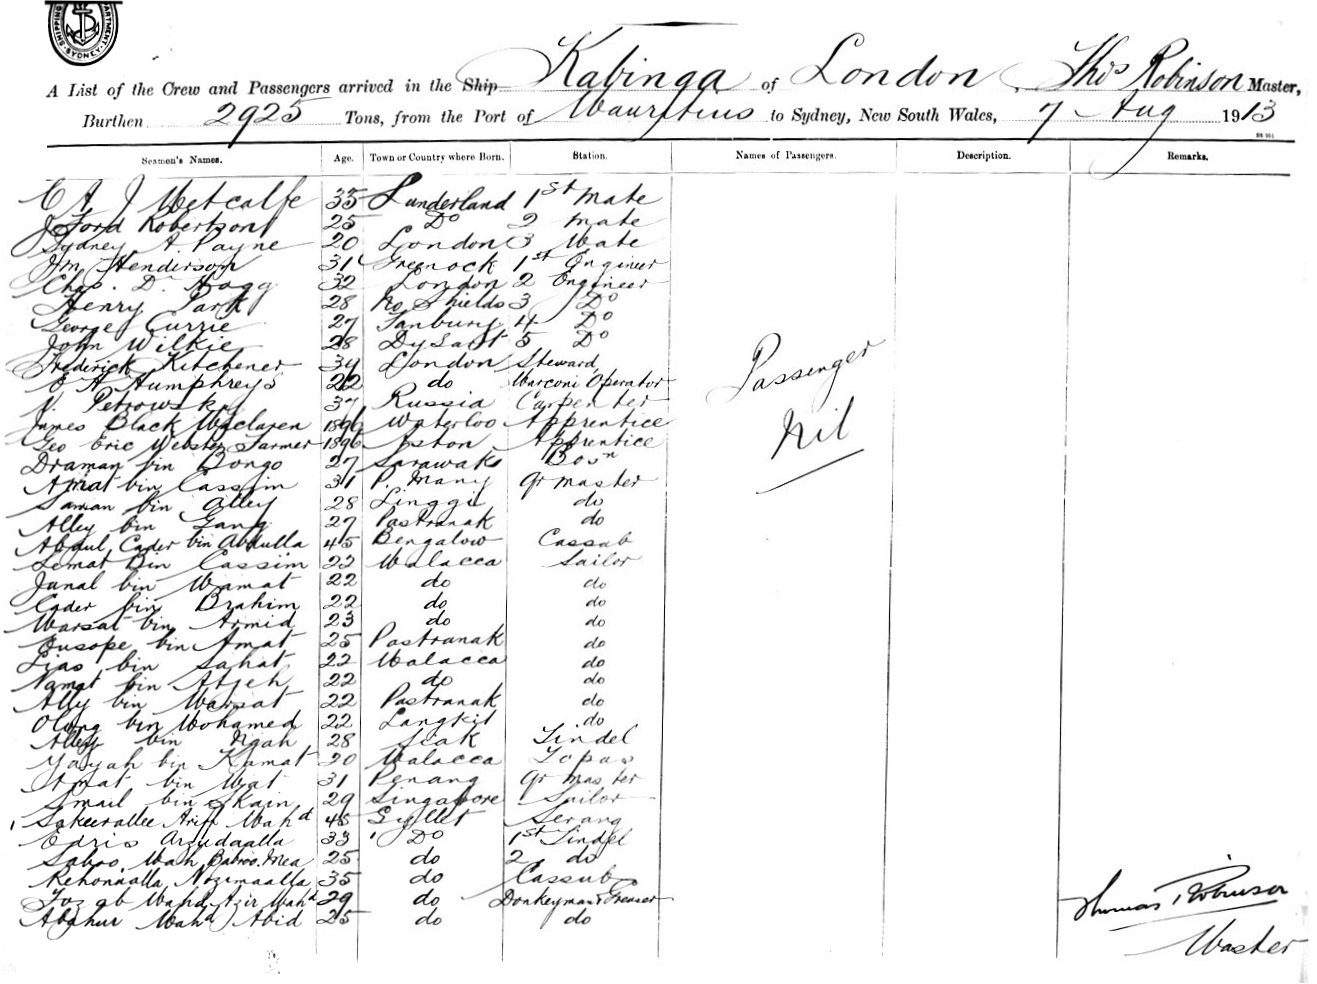 SHIPPING DEPARTMENT. SYDNEY.
A List of the Crew and Passengers arrived in the Ship Kabinga of London, Thos Robinson Master,
Burthen 2925 Tons, from the Port of Mauritius to Sydney, New South Wales, 7 Aug 1913
Seamen's Names. Age. Town or Country where Born. Station. Names of Passengers. Description. Remarks.
C A J Metcalfe 35 Sunderland 1st Mate
J Ford Robertson 25 Do 2 Mate
Sydney A. Payne 20 London 3 Mate
Jm Henderson 31 Greenock 1st Engineer
Chas. D. Hogg 32 London 2 Engineer
Henry Park 28 No Shields 3 Do
George Currie 27 Tanbury 4 Do
John Wilkie 28 Dysart 5 Do
Frederick Kitchener 39 London Steward
H. Humphreys 22 do Marconi Operator
Petrowsky 37 Russia Carpenter
James Black Maclaren 1896 Waterloo Apprentice
Geo Eric Webster Farmer 1896 Aston Apprentice
Draman bin Bongo 27 Sarawak Bosn
Amat bin Cassim 31 P. Many Qr master
Saman bin Alley 28 Linggi do
Alley bin Gang 27 Pastranak do
Abdul Cader bin Abdulla 45 Bengalow Cassab
Lemat Bin Cassim 22 Malacca Sailor
Janal bin Mamat 22 do do
Cader bin Brahim 22 do do
Marsat bin Armid 23 do do
Eusope bin Amat 25 Pastranak do
Lias bin Sahat 22 Malacca do
Namat bin Atjeh 22 do do
Ally bin Marsat 22 Pastranak do
Olong bin Mohamed 22 Langkit do
Alley bin Ngah 28 Siak Tindel
Yayah bin Kamat 20 Malacca Topas
Amat bin Mat 31 Penang Qr master
Smail bin Skain 29 Singapore Sailor
Sakeerallee Ariff Mahd 45 Syllet Serang
Edris Arjudaalla 33 Do 1st Tindel
Saboo Mah Baboo Mea 25 do 2 do
Rehonaalla Nozimaalla 35 do Cassab
Tozab Mahd Azir Mahd 29 do Donkeyman & Greaser
Abghur Mahd Abid 25 do do
Passenger
Nil
Thomas Robinson
Master